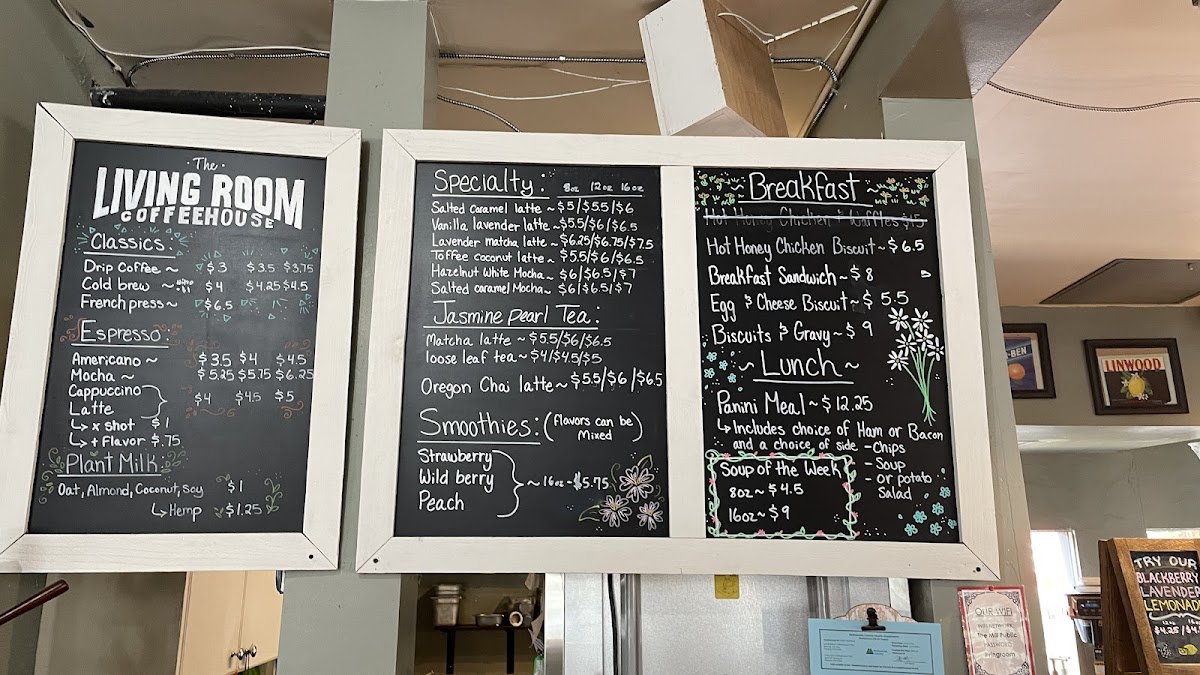 The
LIVING ROOM
COFFEEHOUSE
Classics:
Drip Coffee ~ $3 $3.5 $3.75
Cold brew ~ $4 $4.25 $4.5
French press ~ $6.5
Espresso:
Americano ~ $3.5 $4 $4.5
Mocha ~ $5.25 $5.75 $6.25
Cappuccino
Latte
$4 $4.5 $5
↳ x shot $1
↳ + flavor $.75
Plant Milk:
Oat, Almond, Coconut, Soy $1
↳ Hemp $1.25
Specialty: 8oz 12oz 16oz
Salted caramel latte ~ $5/$5.5/$6
Vanilla lavender latte ~ $5.5/$6/$6.5
Lavender matcha latte ~ $6.25/$6.75/$7.5
Toffee coconut latte ~ $5.5/$6/$6.5
Hazelnut White Mocha ~ $6/$6.5/$7
Salted caramel Mocha ~ $6/$6.5/$7
Jasmine Pearl Tea:
Matcha latte ~ $5.5/$6/$6.5
loose leaf tea ~ $4/$4.5/$5
Oregon Chai latte ~ $5.5/$6/$6.5
Smoothies: (flavors can be Mixed)
Strawberry
Wild berry
Peach
~ 16oz - $5.75
Breakfast
Hot Honey Chicken & Waffles $15
Hot Honey Chicken Biscuit ~ $6.5
Breakfast Sandwich ~ $8
Egg & Cheese Biscuit ~ $5.5
Biscuits & Gravy ~ $9
~ Lunch ~
Panini Meal ~ $12.25
↳ Includes choice of Ham or Bacon
and a choice of side - Chips
- Soup
- or potato
Salad
Soup of the Week
8oz ~ $4.5
16oz ~ $9
-BEN
LINWOOD
TRY OUR
BLACKBERRY
LAVENDER
LEMONAD
$4.25
OUR WIFI
WIFI NETWORK:
The Mill Public
PASSWORD:
livingroom